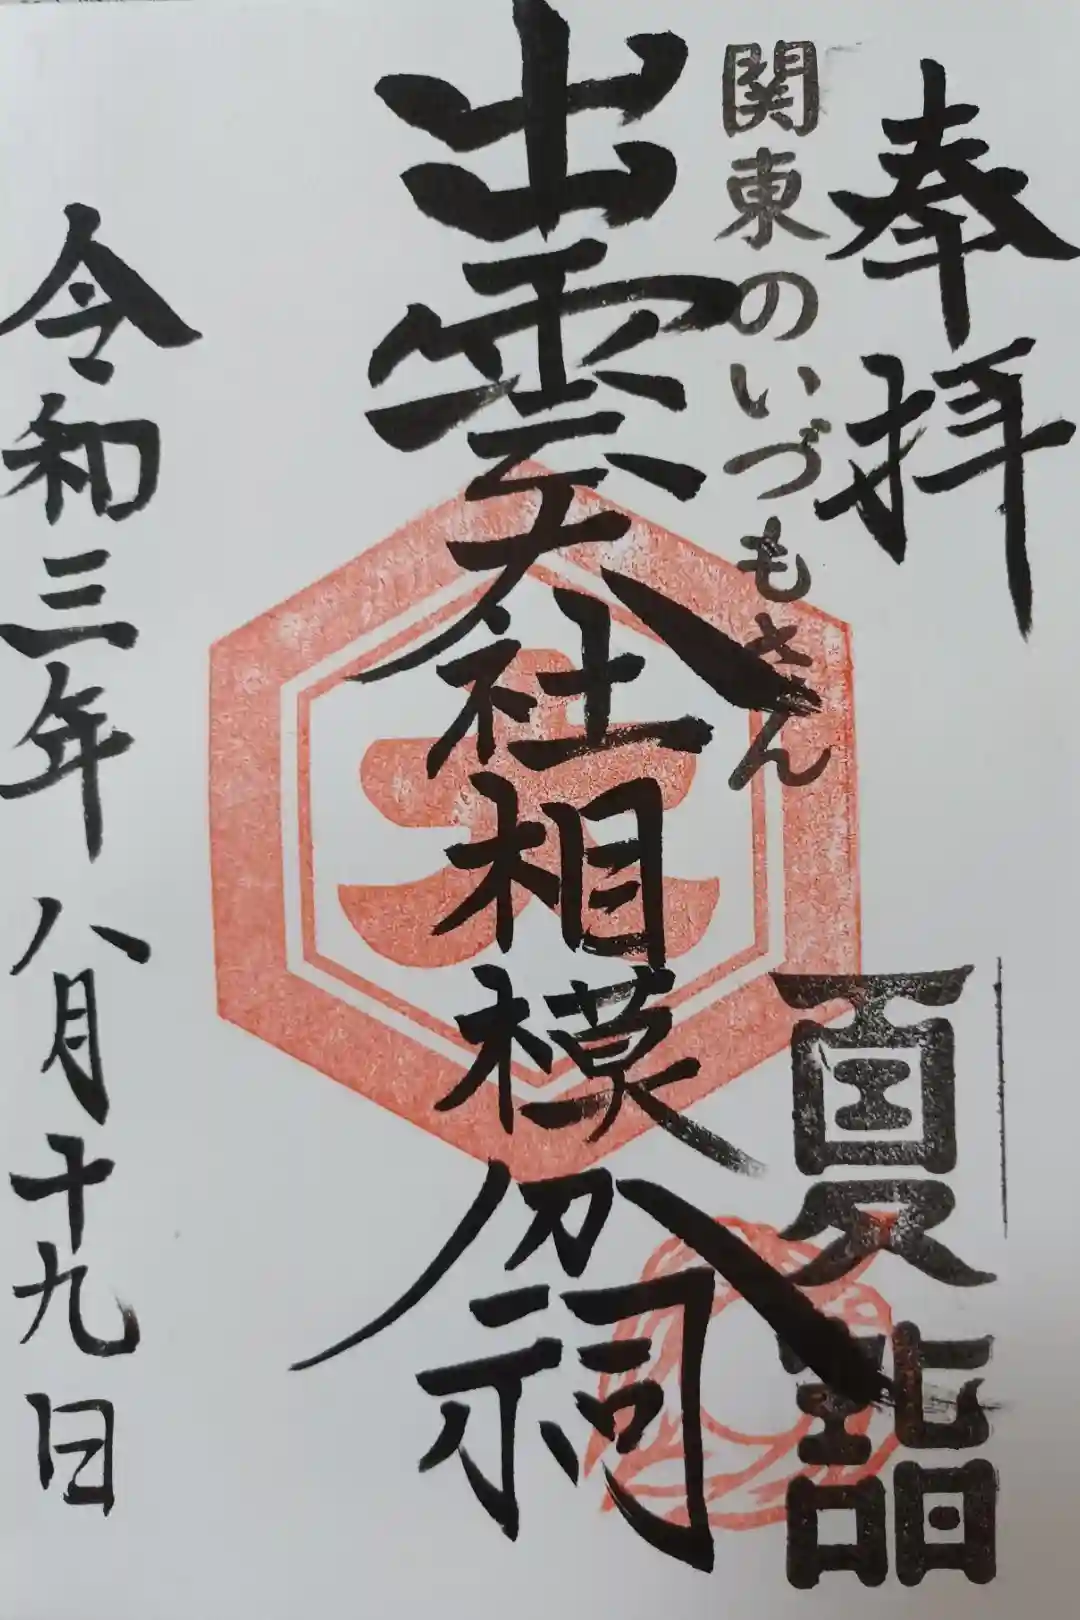 奉拝
関東のいづもさん
夏詣
出雲大社相模分祠
大
令和三年八月十九日